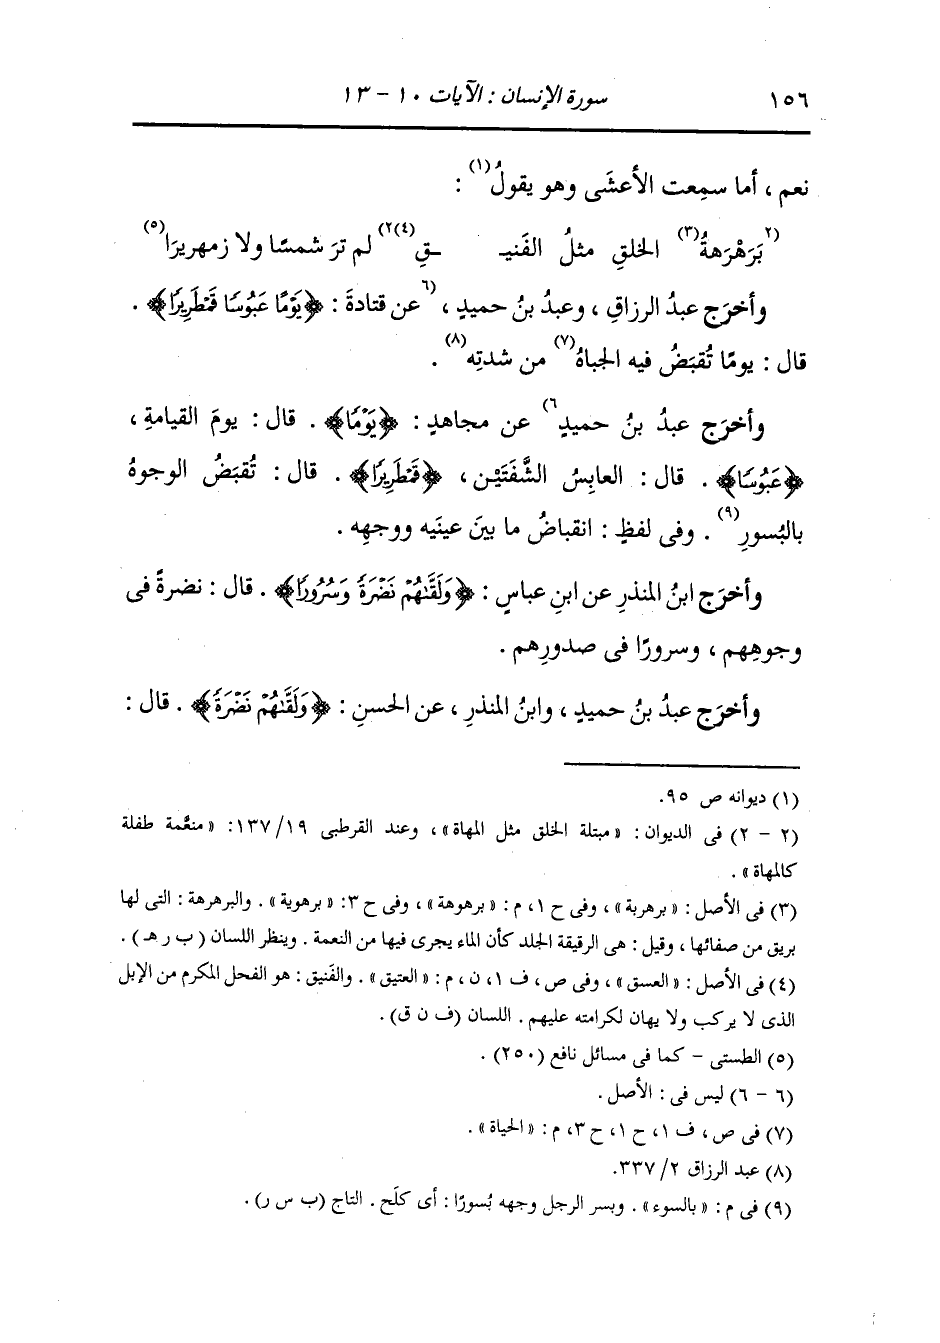 ١٥٦ سورة الإنسان : الآيات ١٠ - ١٣
نعم ، أما سمِعت الأعشَى وهو يقولُ(١) :
(٢ بَرَهْرَهةُ(٣) الخلقِ مثلُ الفَنيـ ـقِ(٤)٢) لم ترَ شمسًا ولا زمهريرَا(٥)
وأخرَج عبدُ الرزاقِ ، وعبدُ بنُ حميدٍ ، (٦ عن قتادةَ : ﴿يَوْمًا عَبُوسًا قَمْطَرِيرًا﴾ .
قال : يومًا تُقبَضُ فيه الجباهُ(٧) من شدتِه(٨) .
وأخرَج عبدُ بنُ حميدٍ ٦) عن مجاهدٍ : ﴿يَوْمًا﴾ . قال : يومَ القيامةِ ،
﴿عَبُوسًا﴾ . قال : العابِسُ الشَّفَتَيْن ، ﴿قَمْطَرِيرًا﴾ . قال : تُقبَضُ الوجوهُ
بالبُسورِ(٩) . وفى لفظٍ : انقباضُ ما بينَ عينَيه ووجهِه .
وأخرَج ابنُ المنذرِ عن ابنِ عباسٍ : ﴿وَلَقَّىٰهُمْ نَضْرَةً وَسُرُورًا﴾ . قال : نضرةً فى
وجوهِهم ، وسرورًا فى صدورِهم .
وأخرَج عبدُ بنُ حميدٍ ، وابنُ المنذرِ ، عن الحسنِ : ﴿وَلَقَّىٰهُمْ نَضْرَةً﴾ . قال :
(١) ديوانه ص ٩٥.
(٢ - ٢) فى الديوان : «مبتلة الخلق مثل المهاة» ، وعند القرطبى ١٩/ ١٣٧: «منعَّمة طفلة
كالمهاة» .
(٣) فى الأصل : «برهربة» ، وفى ح ١، م : «برهوهة» ، وفى ح ٣: «برهوية» . والبرهرهة : التى لها
بريق من صفائها ، وقيل : هى الرقيقة الجلد كأن الماء يجرى فيها من النعمة . وينظر اللسان (ب ر هـ) .
(٤) فى الأصل : «العسق» ، وفى ص ، ف ١، ن ، م : «العتيق» . والفَنيق : هو الفحل المكرم من الإبل
الذى لا يركب ولا يهان لكرامته عليهم . اللسان (ف ن ق) .
(٥) الطستى - كما فى مسائل نافع (٢٥٠) .
(٦ - ٦) ليس فى : الأصل .
(٧) فى ص ، ف ١، ح ١، ح ٣، م : «الحياة» .
(٨) عبد الرزاق ٢/ ٣٣٧.
(٩) فى م : «بالسوء» . وبسر الرجل وجهه بُسورًا : أى كلَح . التاج (ب س ر) .